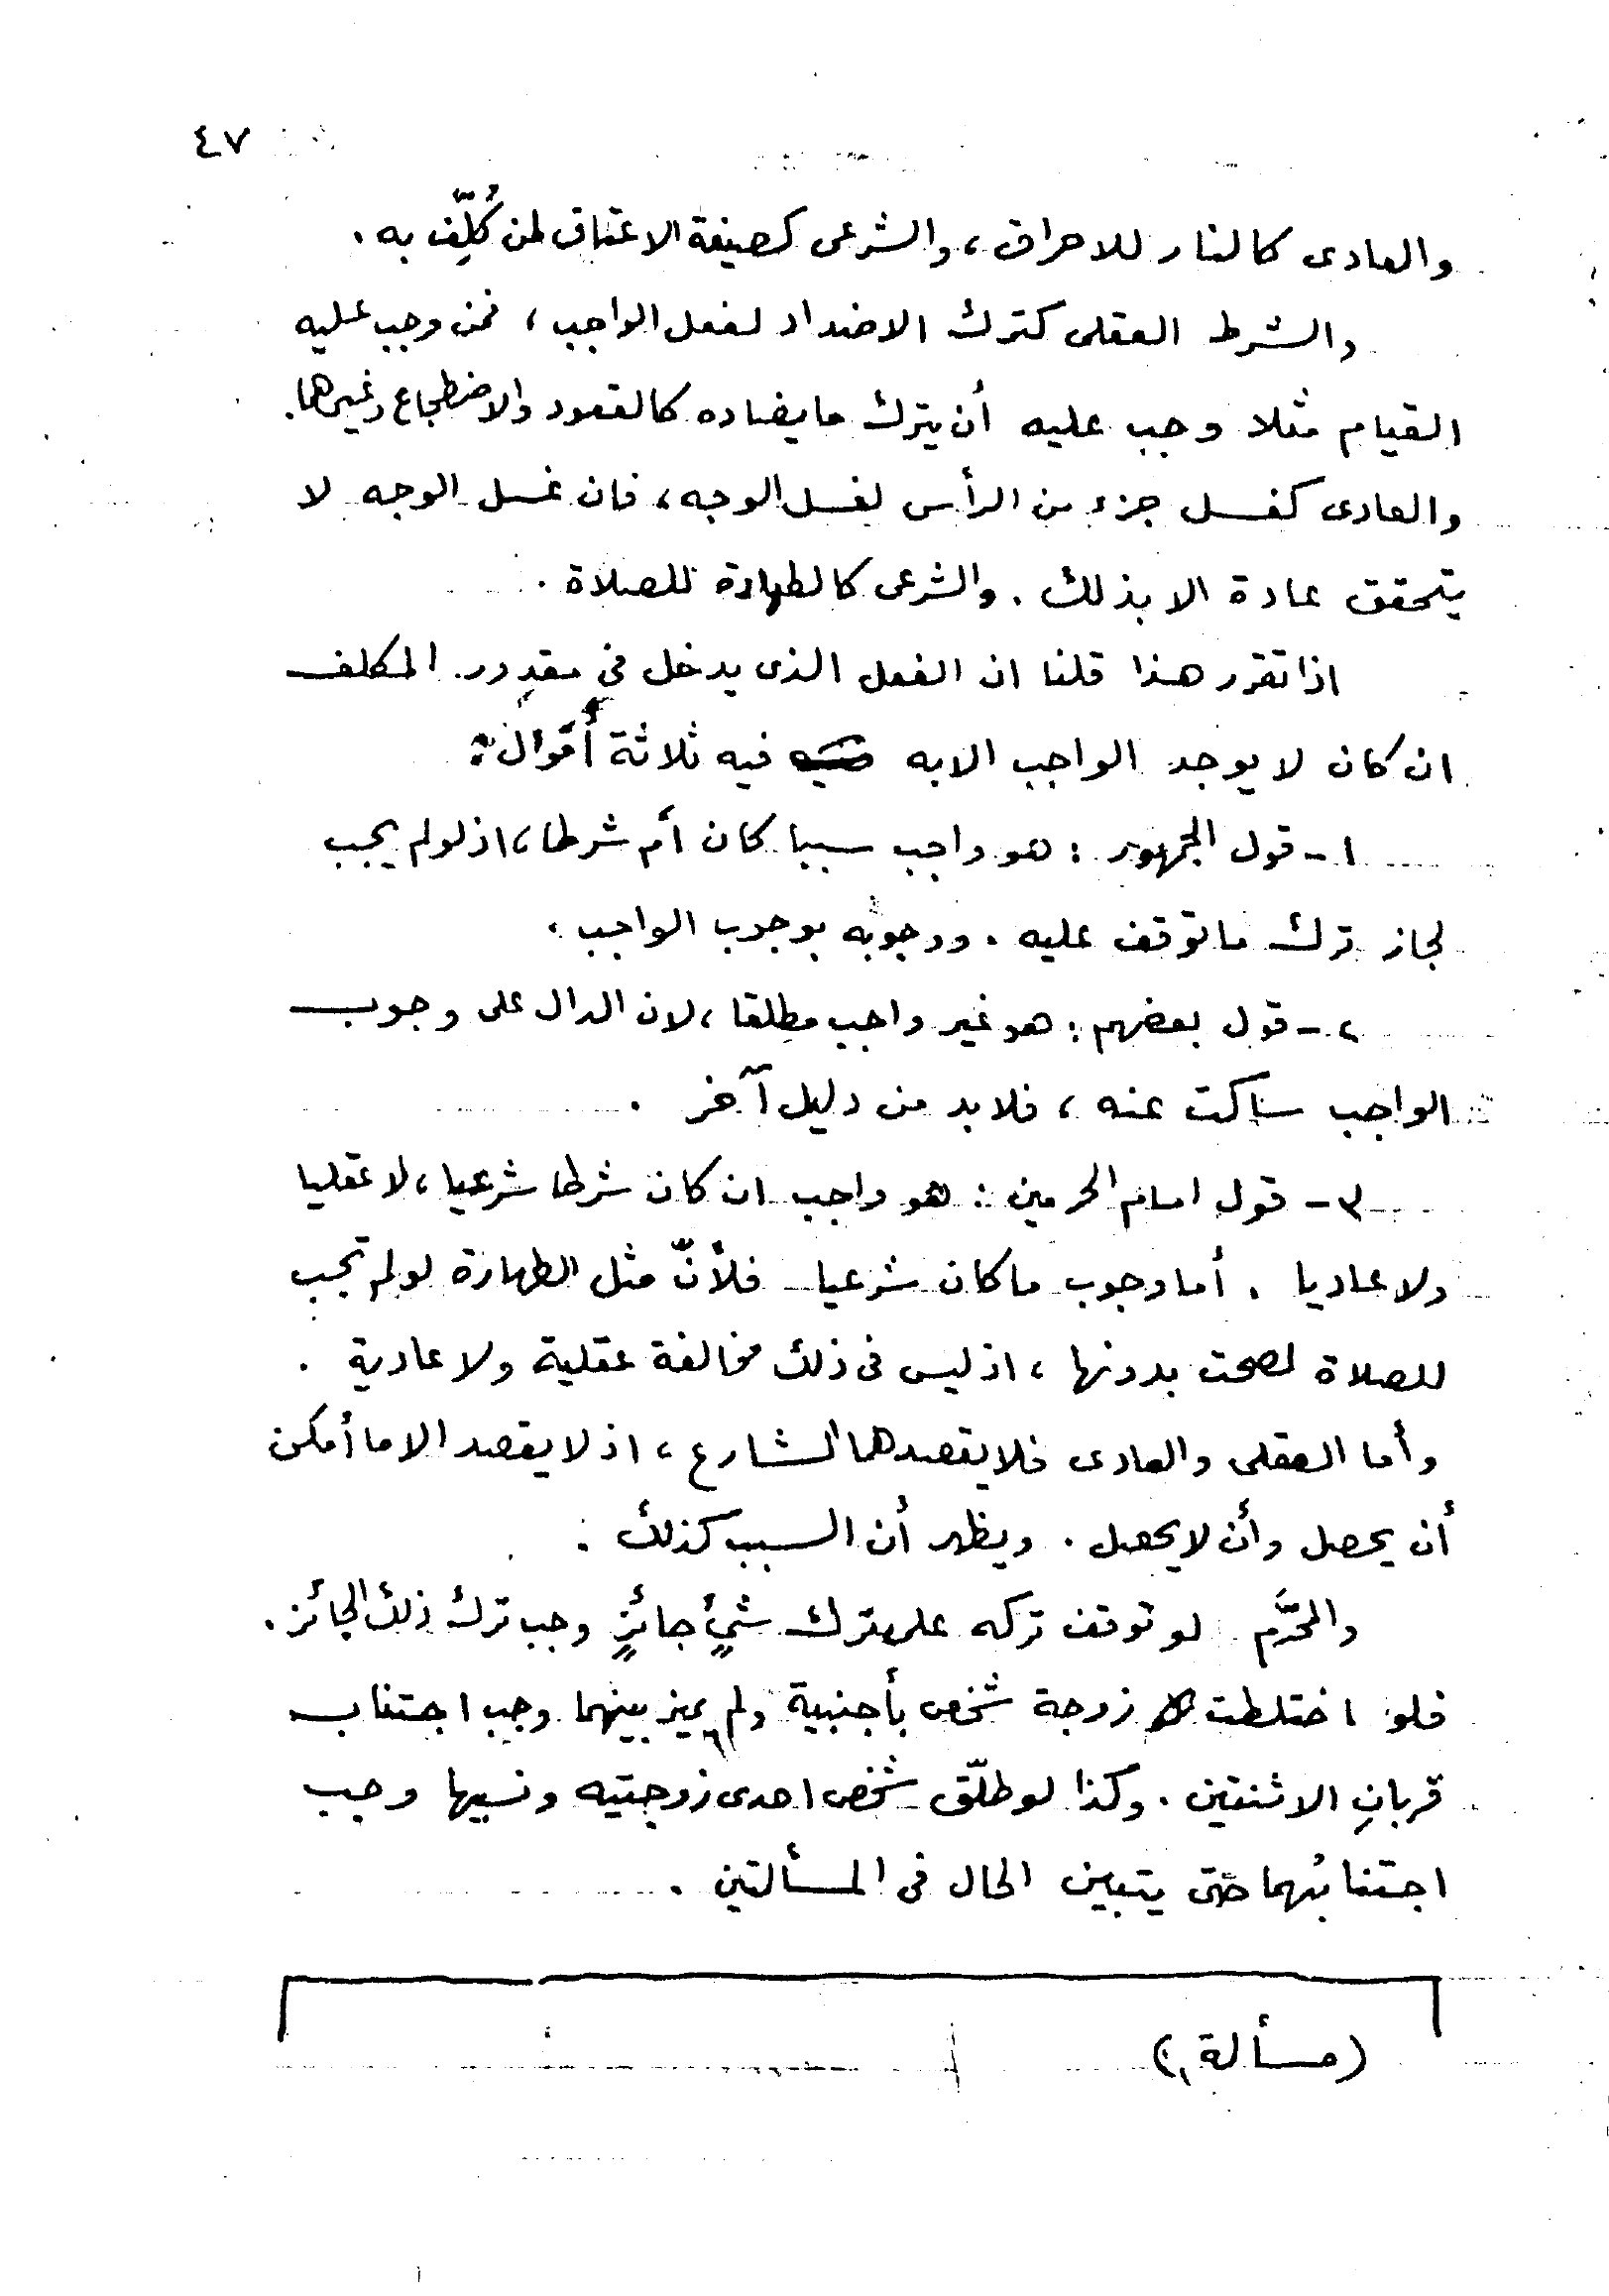 ٤٧
والعادى كالنار للاحراق، والشرعى كصيغة الاعتاق لمن كُلِّف به.
والشرط العقلى كترك الاضداد لفعل الواجب، فمن وجب عليه
القيام مثلا وجب عليه أن يترك ما يضاده كالقعود والاضطجاع وغيرهما.
والعادى كغسل جزء من الرأس لغسل الوجه، فان غسل الوجه لا
يتحقق عادة الا بذلك. والشرعى كالطهارة للصلاة.
اذا تقرر هذا قلنا ان الفعل الذى يدخل في مقدور المكلف
ان كان لا يوجد الواجب الا به فيه ثلاثة أقوال:
١- قول الجمهور: هو واجب سببا كان أم شرطا، اذ لو لم يجب
لجاز ترك ما توقف عليه. ووجوبه بوجوب الواجب.
٢- قول بعضهم: هو غير واجب مطلقا، لان الدال على وجوب
الواجب ساكت عنه، فلا بد من دليل آخر.
٣- قول امام الحرمين: هو واجب ان كان شرطا شرعيا، لا عقليا
ولا عاديا. أما وجوب ما كان شرعيا فلأنّ مثل الطهارة لو لم تجب
للصلاة لصحت بدونها، اذ ليس فى ذلك مخالفة عقلية ولا عادية.
وأما العقلى والعادى فلا يقصدهما الشارع، اذ لا يقصد الا ما أمكن
أن يحصل وأن لا يحصل. ويظهر أن السبب كذلك.
والمحرَّم لو توقف تركه على ترك شيءٍ جائزٍ وجب ترك ذلك الجائز.
فلو اختلطت زوجة شخص بأجنبية ولم يميز بينهما وجب اجتناب
قربانِ الاثنتين. وكذا لو طلّق شخص احدى زوجتيه ونسيها وجب
اجتنابُهما حتى يتبين الحال فى المسألتين.
(مسألة)